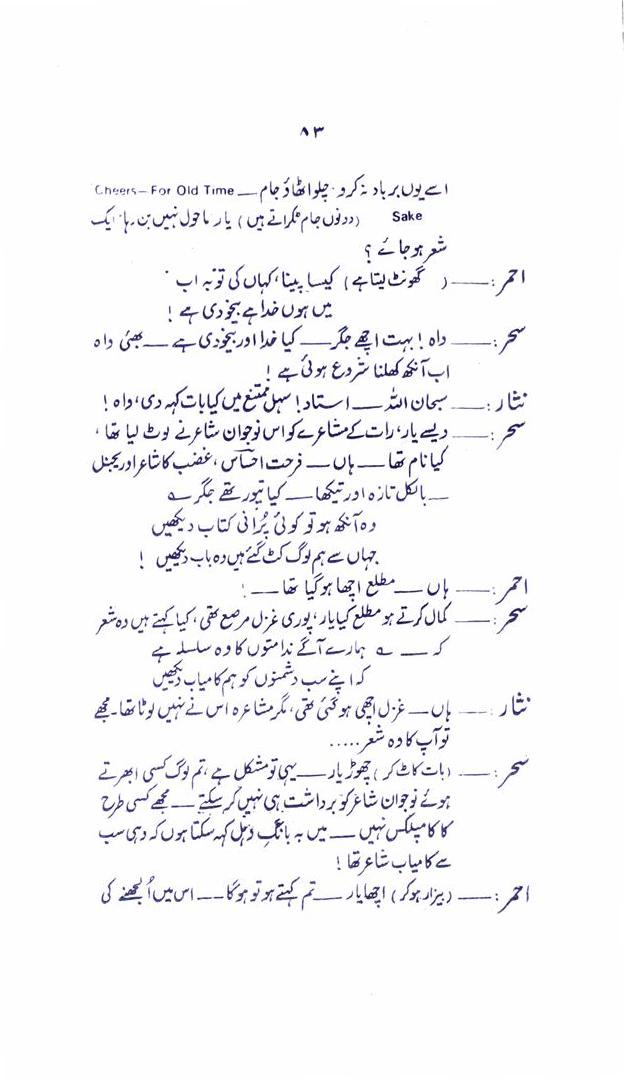 ۸۳
اسے یوں برباد نہ کرو۔ چلو اٹھاؤ جام ــــ Cheers – For Old Time
Sake (دونوں جام ٹکراتے ہیں) یار ماحول نہیں بن رہا ایک
شعر ہو جائے ؟
احمر : ــــ ( گھونٹ لیتا ہے ) کیسا پینا، کہاں کی توبہ اب
میں ہوں خدا ہے بیخودی ہے !
سحر : ــــ واہ ! بہت اچھے جگر ــــ کیا خدا اور بیخودی ہے ــــ بھئی واہ
اب آنکھ کھلنا شروع ہوئی ہے !
نثار : ــــ سبحان اللہ ــــ استاد ! سہل ممتنع میں کیا بات کہہ دی، واہ !
سحر : ــــ ویسے یار، رات کے مشاعرے کو اس نوجوان شاعر نے لوٹ لیا تھا ،
کیا نام تھا ــــ ہاں ــــ فرحت احساس ، غضب کا شاعر اوریجنل
ــــ بالکل تازہ اور تیکھا ــــ کیا تیور تھے جگر ؎
وہ آنکھ ہو تو کوئی پُرانی کتاب دیکھیں
جہاں سے ہم لوگ کٹ گئے ہیں وہ باب دیکھیں !
احمر : ــــ ہاں ــــ مطلع اچھا ہو گیا تھا ــــ !
سحر : ــــ کمال کرتے ہو مطلع کیا یار ، پوری غزل مرصع تھی ، کیا کہتے ہیں وہ شعر
کہ ــــ ؎ ہمارے آگے ندامتوں کا وہ سلسلہ ہے
کہ اپنے سب دشمنوں کو ہم کامیاب دیکھیں
نثار : ــــ ہاں ــــ غزل اچھی ہو گئی تھی، مگر مشاعرہ اس نے نہیں لوٹا تھا۔ مجھے
تو آپ کا وہ شعر .....
سحر : ــــ (بات کاٹ کر) چھوڑ یار ــــ یہی تو مشکل ہے ، تم لوگ کسی ابھرتے
ہوئے نوجوان شاعر کو برداشت ہی نہیں کر سکتے ــــ مجھے کسی طرح
کا کامپلکس نہیں ــــ میں بہ بانگِ دُہل کہہ سکتا ہوں کہ وہی سب
سے کامیاب شاعر تھا !
احمر : ــــ (بیزار ہو کر) اچھا یار ــــ تم کہتے ہو تو ہو گا ــــ اس میں اُلجھنے کی